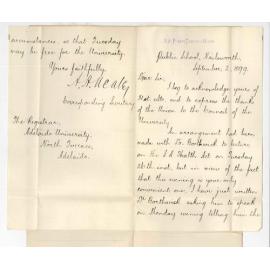 Public School, Nailsworth,
September, 2, 1899.
Dear Sir,
I beg to acknowledge yours of
31st ult. and to express the thanks
of the Union to the Council of the
University.
An arrangement had been
made with Dr Borthwick to lecture
on the S.A Health Act on Tuesday
26th inst, but in view of the fact
that this evening is your only
convenient one, I have just written
Dr Borthwick asking him to speak
on Monday evening telling him the
circumstances, so that Tuesday
may be free for the University.
Yours faithfully,
Corresponding Secretary
The Registrar,
Adelaide University,
North Terrace,
Adelaide.